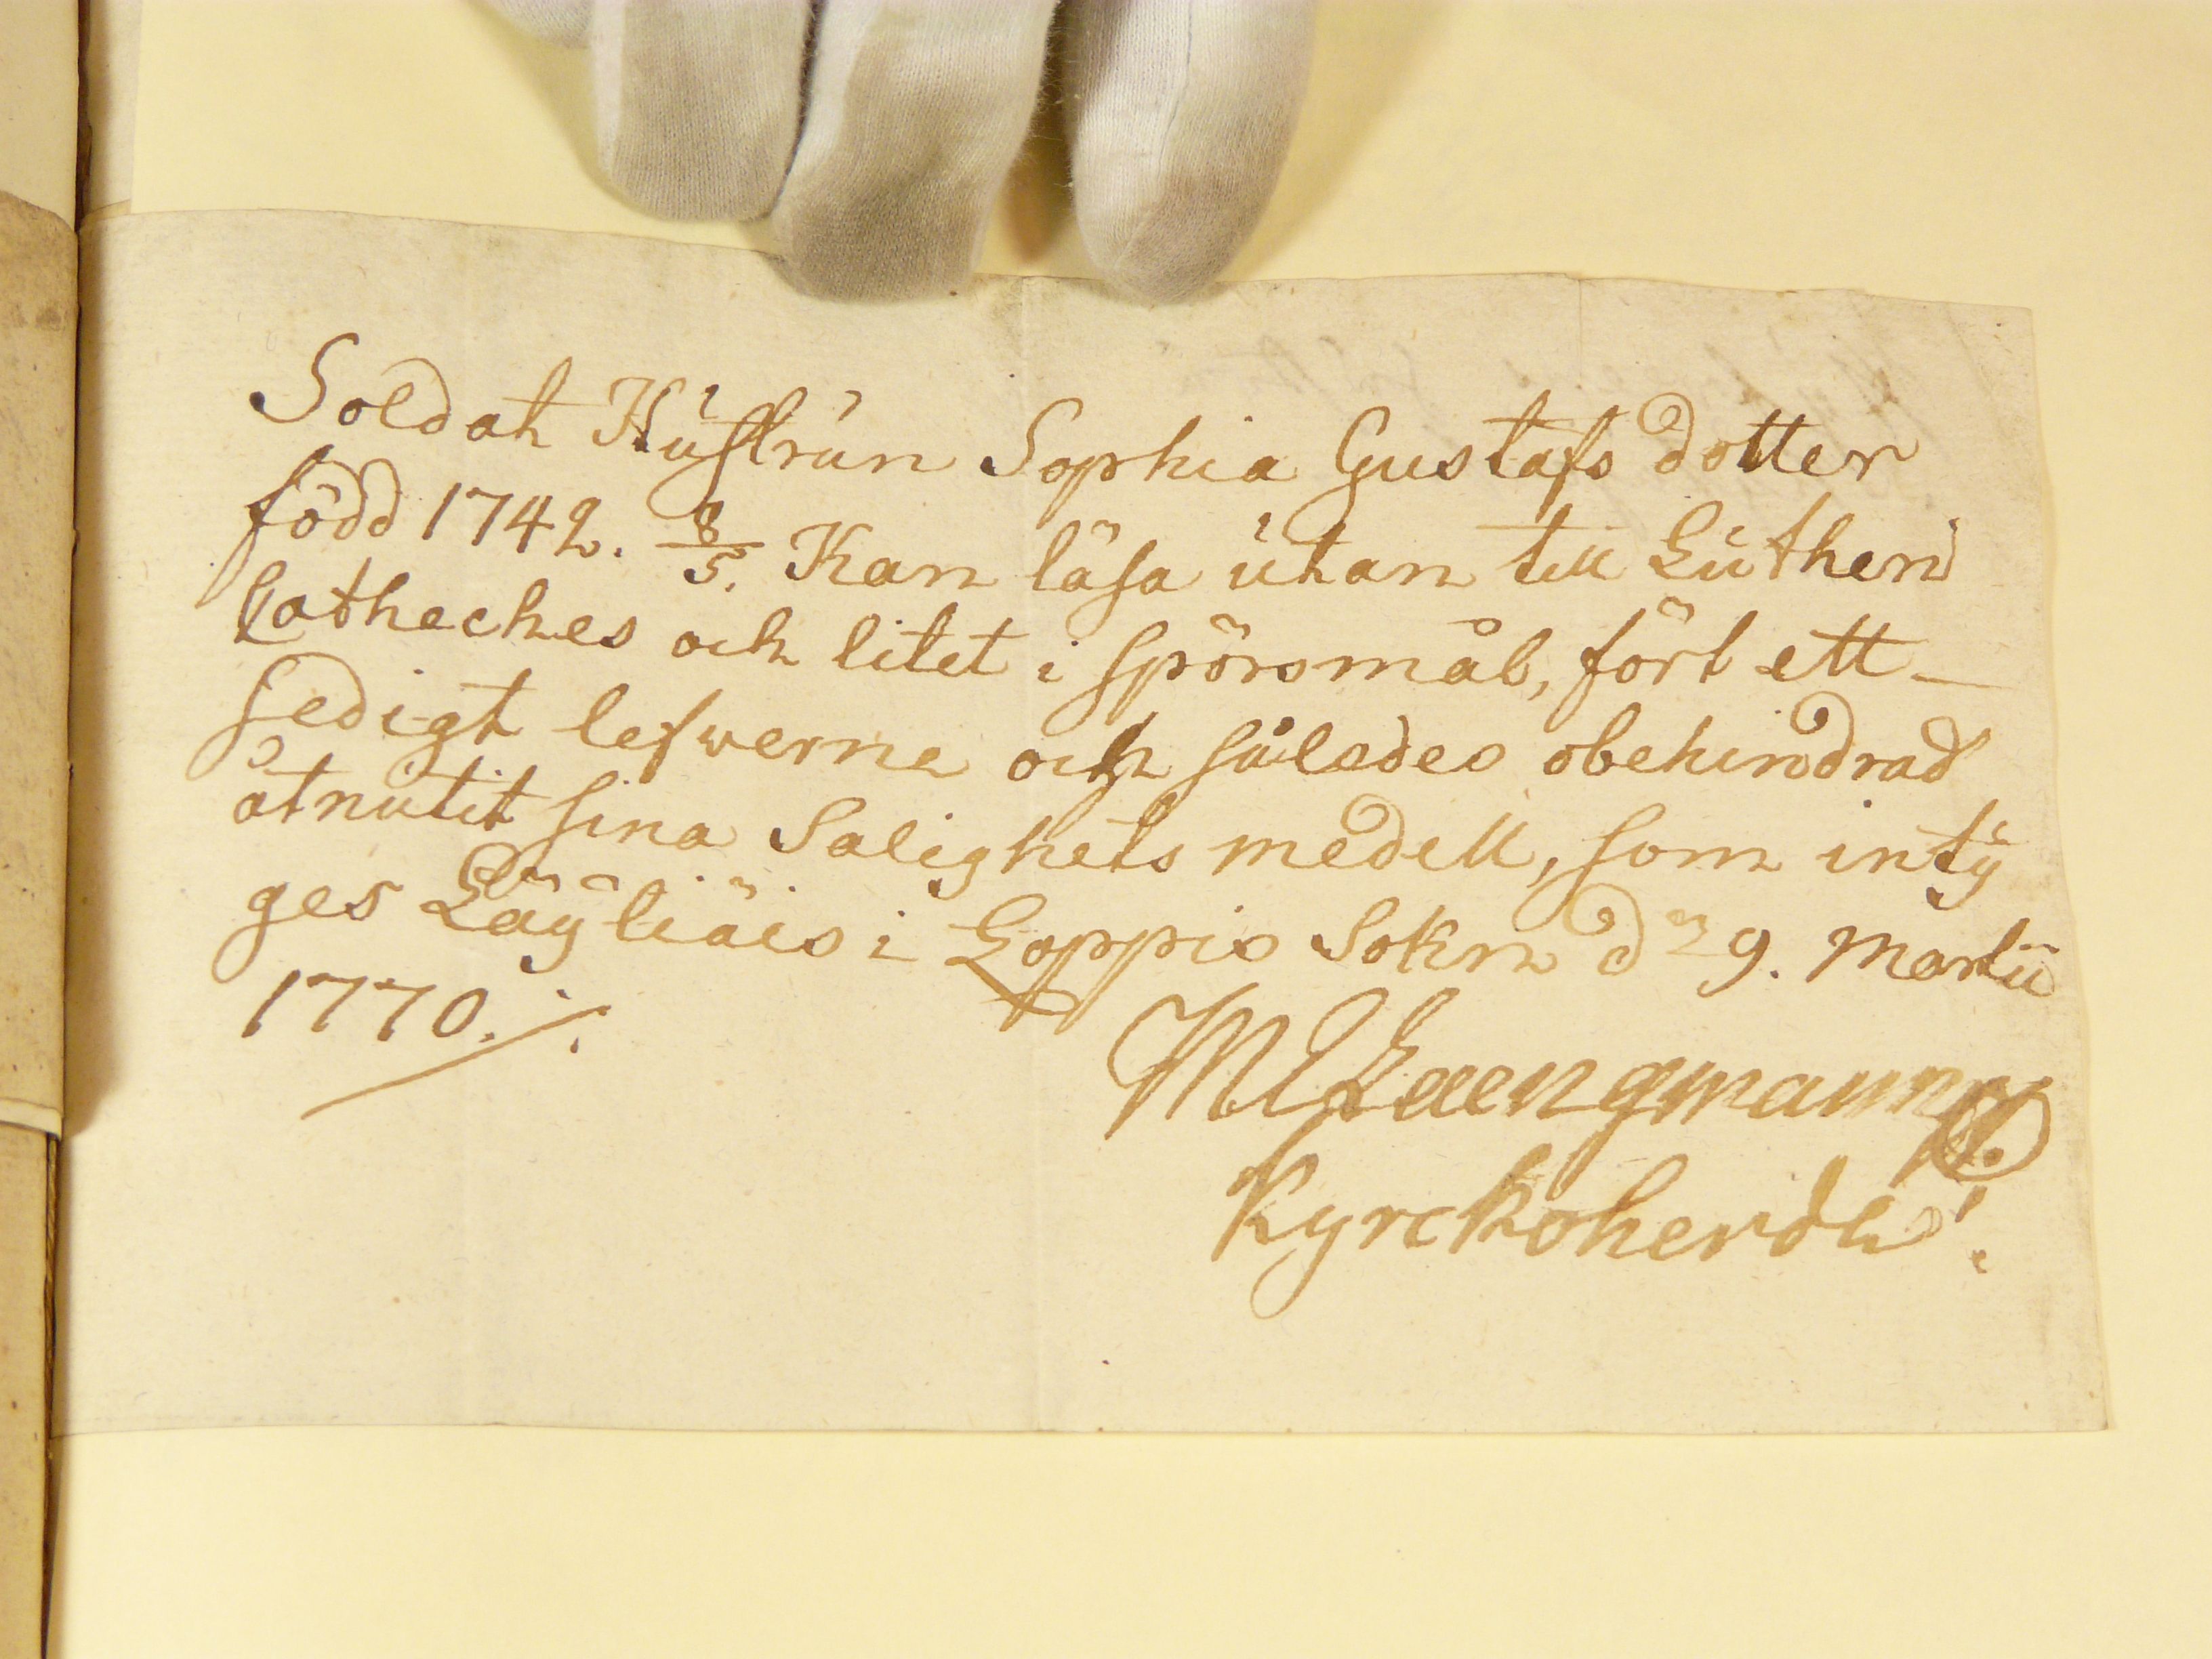 Soldat Hustrun Sophia Gustafs dotter
född 1742. 8/5. Kan läsa utan till Lutheri
Catheches och litet i spörsmål, fört ett
sedigt lefwerne och således obehindrad
åtnutit sina Salighets medell, som intÿ
ges i Loppis Sokn d 9. Martii
1770. ./.
Kyrckoherde